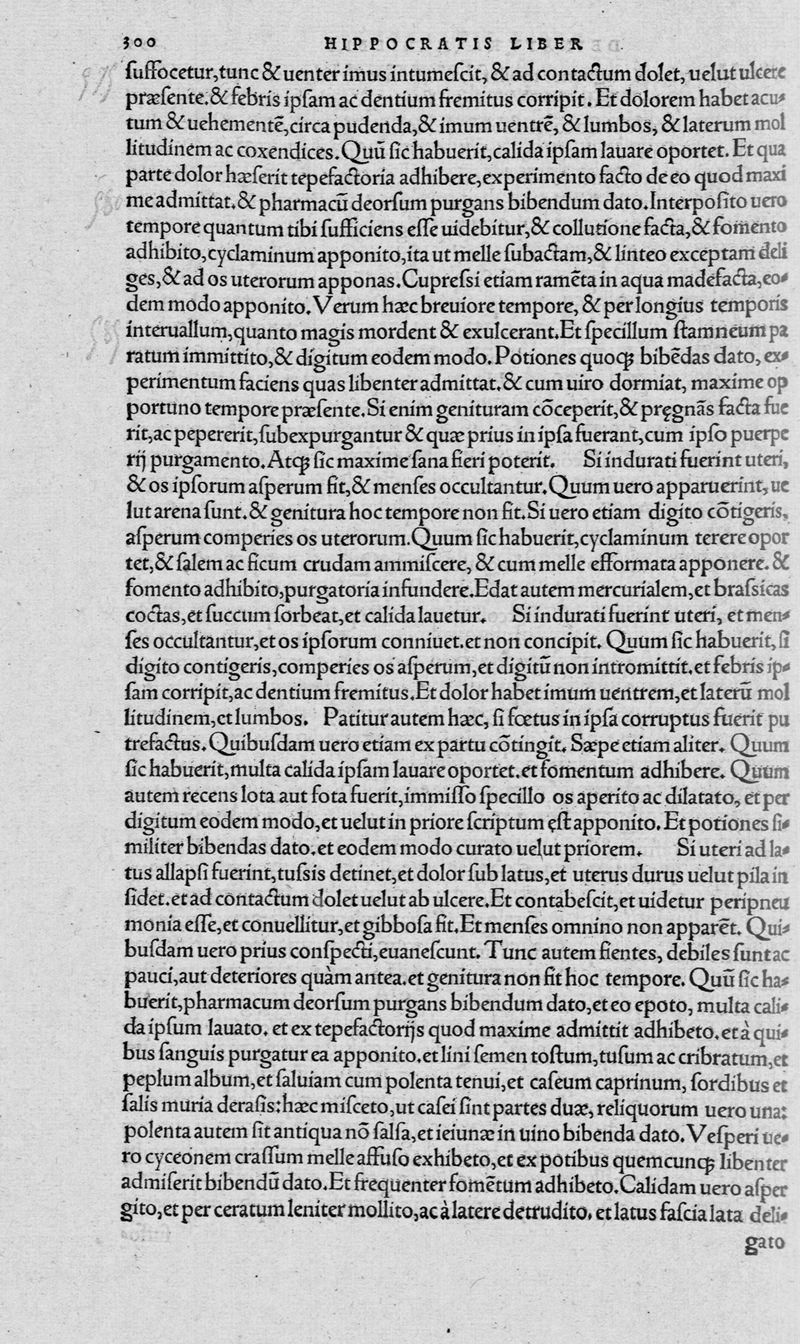 300 HIPPOCRATIS LIBER
suffocetur,tunc & uenter imus intumescit, & ad contactum dolet, uelut ulcere
præsente.& febris ipsam ac dentium fremitus corripit. Et dolorem habet acu-
tum & uehementẽ,circa pudenda,& imum uentrẽ, & lumbos, & laterum mol
litudinem ac coxendices. Quũ sic habuerit,calida ipsam lauare oportet. Et qua
parte dolor hæserit tepefactoria adhibere,experimento facto de eo quod maxi
me admittat.& pharmacũ deorsum purgans bibendum dato.Interposito uero
tempore quantum tibi sufficiens esse uidebitur,& collutione facta,& fomento
adhibito,cyclaminum apponito,ita ut melle subactam,& linteo exceptam deli
ges,& ad os uterorum apponas.Cupressi etiam ramẽta in aqua madefacta,eo-
dem modo apponito. Verum hæc breuiore tempore, & per longius temporis
interuallum,quanto magis mordent & exulcerant.Et specillum stamneum pa
ratum immittito,& digitum eodem modo.Potiones quoqꝫ bibẽdas dato, ex-
perimentum faciens quas libenter admittat.& cum uiro dormiat, maxime op
portuno tempore præsente.Si enim genituram cõceperit,& pręgnãs facta fue
rit,ac pepererit,subexpurgantur & quæ prius in ipsa fuerant,cum ipso puerpe
rij purgamento.Atqꝫ sic maxime sana fieri poterit. Si indurati fuerint uteri,
& os ipsorum asperum fit,& menses occultantur.Quum uero apparuerint, ue
lut arena sunt.& genitura hoc tempore non fit.Si uero etiam digito cõtigeris,
asperum comperies os uterorum.Quum sic habuerit,cyclaminum terere opor
tet,& salem ac ficum crudam ammiscere, & cum melle efformata apponere. &
fomento adhibito,purgatoria infundere.Edat autem mercurialem,et brassicas
coctas,et succum sorbeat,et calida lauetur. Si indurati fuerint uteri, et men-
ses occultantur,et os ipsorum conniuet.et non concipit. Quum sic habuerit, si
digito contigeris,comperies os asperum,et digitũ non intromittit.et febris ip-
sam corripit,ac dentium fremitus.Et dolor habet imum uentrem,et laterũ mol
litudinem,et lumbos. Patitur autem hæc, si fœtus in ipsa corruptus fuerit pu
trefactus.Quibusdam uero etiam ex partu cõtingit. Sæpe etiam aliter. Quum
sic habuerit,multa calida ipsam lauare oportet.et fomentum adhibere. Quum
autem recens lota aut fota fuerit,immisso specillo os aperito ac dilatato, et per
digitum eodem modo,et uelut in priore scriptum ęst apponito.Et potiones si-
militer bibendas dato.et eodem modo curato uelut priorem. Si uteri ad la-
tus allapsi fuerint,tussis detinet,et dolor sub latus,et uterus durus uelut pila in
sidet.et ad contactum dolet uelut ab ulcere.Et contabescit,et uidetur peripneu
monia esse,et conuellitur,et gibbosa fit.Et menses omnino non apparẽt. Qui-
busdam uero prius conspecti,euanescunt. Tunc autem fientes, debiles sunt ac
pauci,aut deteriores quàm antea.et genitura non fit hoc tempore. Quũ sic ha-
buerit,pharmacum deorsum purgans bibendum dato,et eo epoto, multa cali-
da ipsum lauato. et ex tepefactorijs quod maxime admittit adhibeto.et à qui-
bus sanguis purgatur ea apponito.et lini semen tostum,tusum ac cribratum,et
peplum album,et saluiam cum polenta tenui,et caseum caprinum, sordibus et
salis muria derasis:hæc misceto,ut casei sint partes duæ, reliquorum uero una:
polenta autem sit antiqua nõ salsa,et ieiunæ in uino bibenda dato. Vesperi ue-
ro cyceonem crassum melle affuso exhibeto,et ex potibus quemcunqꝫ libenter
admiserit bibendũ dato.Et frequenter fomẽtum adhibeto.Calidam uero asper
gito,et per ceratum leniter mollito,ac à latere detrudito. et latus fascia lata deli-
gato